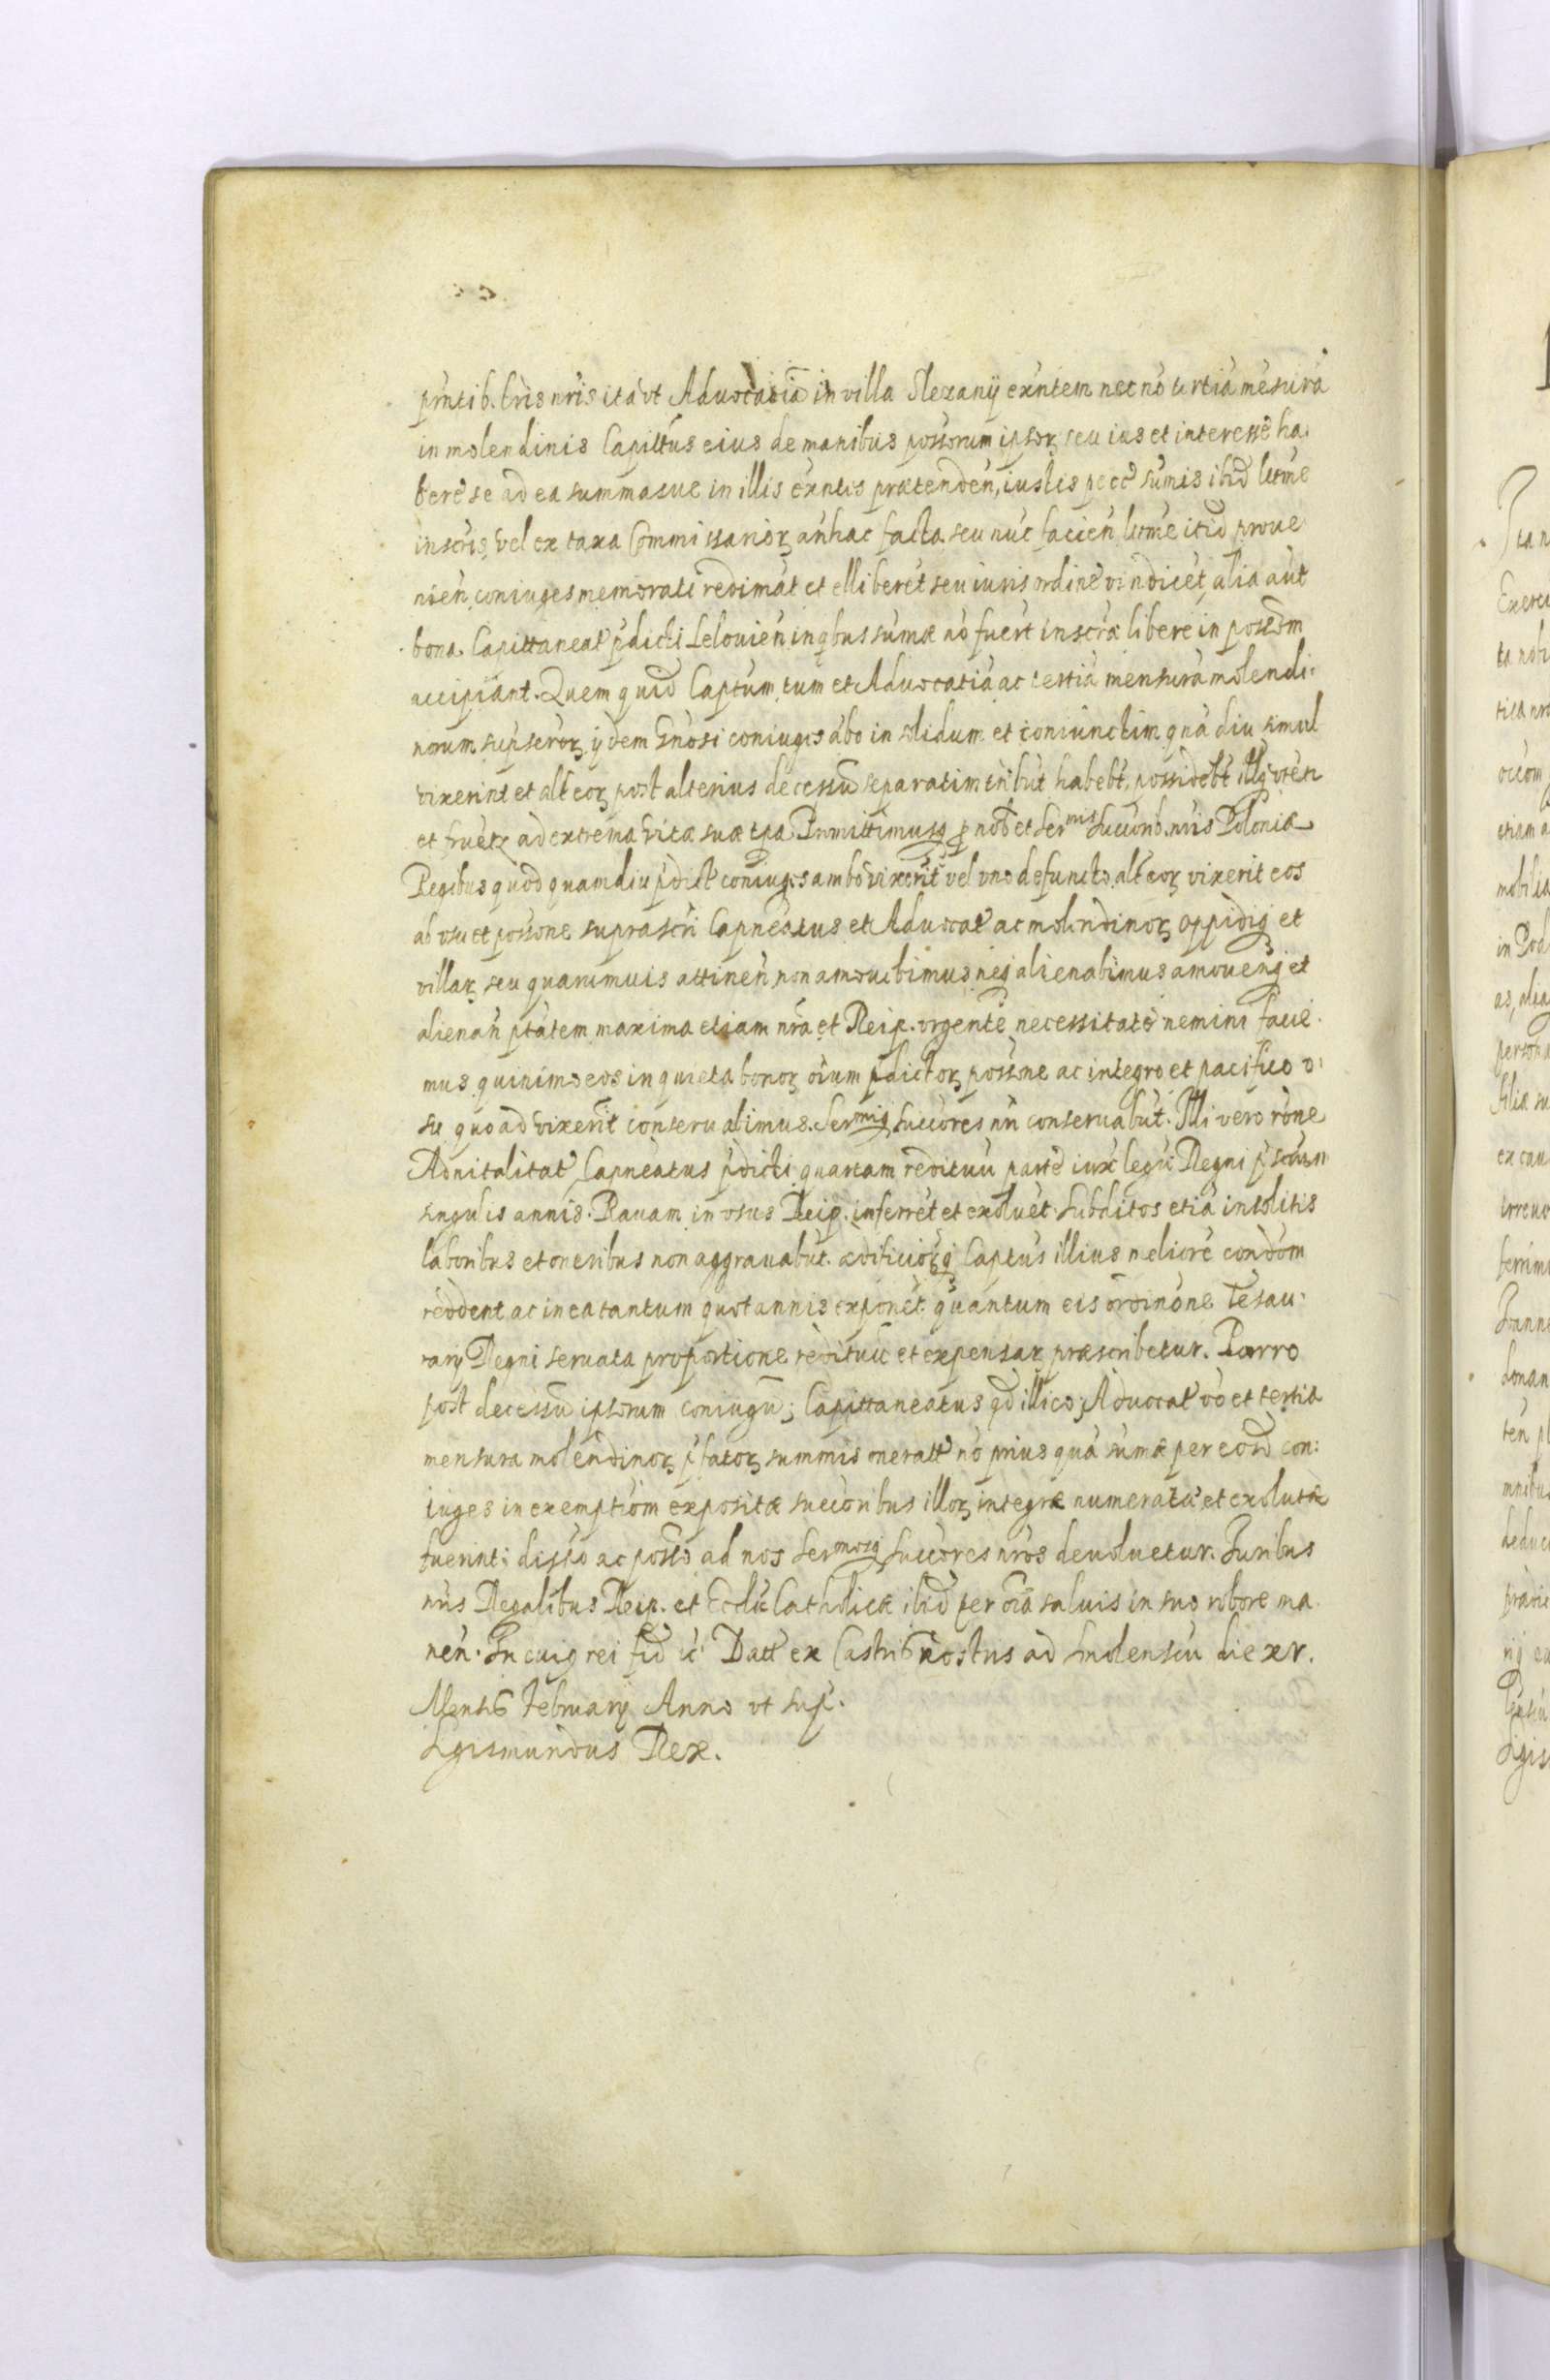 pr̃ntib. lr̃is nr̃is ita vt Aduocatiã in villa Slezanÿ exñtem nec nõ tertiã mẽsurã
in molendinis Capittũs eius de manibus possorum ipsoꝝ seu ius et interesse ha-
bere se ad ea summasue in illis exñtes prætendeñ, iustis pecc̃ sum̃is ibid̃ lr̃tme
inscr̃is, vel ex taxa Commissarioꝝ añhac facta seu nũc facieñ lr̃tme itid̃ proue
nieñ coniuges memorati redimãt et elliberẽt seu iuris ordine vindicẽt, alia aũt
bona Capittaneat̃ p̃dicti Leloujeñ in qbus sum̃æ nõ fuer̃t inscr̃æ libere in possõm
accipiant. Quem quid̃ Captũm, tum et Aduocatiã ac tertiã mensurã molendi-
norum sup̃scroꝝ ijdem Gnõsi coniuges ãbo in solidum et coniunctim quã diu simul
vixerint et alt̃ eoꝝ post alterius decessũ separatim tñbũt habebt̃, possidebt̃ illisq̃ vtẽtr
et fruẽtr ad extrema vitæ suæ tp̃a. Promittimusq̃ ꝓ nob̃ et Ser^mis Succorib. nr̃is Poloniæ
Regibus quod quamdiu p̃dict̃ coniuges ambo vixerĩt vel vno defuncto alt̃ eoꝝ vixerit eos
ab vsu et possone suprascr̃i Capnẽatus et Aduocat̃ ac molendinoꝝ oppidiq̃ et
villaꝝ seu quarumuis attineñ non amouebimus, neq̃ alienabimus amouendiq̃ et
alienañ p̃tãtem maxima etiam nr̃a et Reip. vrgente necessitate nemini facie-
mus quinimo eos in quieta bonoꝝ oĩum p̃dictoꝝ possone ac integro et pacifico v-
su quoad vixerĩt conseruabimus. Ser^miq̃ Succores nr̃i conseruabũt. Illi vero rõne
Aduitalitat̃ Capneatus p̃dicti quartam redituũ parte iux̃ legũ Regni p̃scrum
singulis annis Rauam in vsus Reip. inferrẽt et exoluẽt. Subditos etiã insolitis
laboribus et oneribus non aggrauabũt. ædificioꝝq̃ Captũs illius meliorẽ condõm
reddent ac in ea tantum quotannis exponẽt quantum eis ordinõne Tesau-
rarÿ Regni seruata proportione redituũ et expensaꝝ præscribetur. Porro
post decessũ ipsorum coniugũ; Capittaneatus qd̃ illico; Aduocat̃ vo et tertia
mensura molendinoꝝ p̃fatoꝝ summis onerat̃ nõ prius quã sum̃æ per eosd̃ con-
iuges in exemptiõm expositæ succoribus illoꝝ integræ numeratæ et exolutæ
fuerint; disso ac posso ad nos Ser^mosq̃ Succores nr̃os deuoluetur. Iuribus
nr̃is Regalibus Reip. et Ecclæ Catholicæ ibid̃ per oĩa saluis in suo robore ma-
neñ. In cuiq rei fid̃ &c. Datt̃ ex Castris nostris ad Smolenscũ die xv.
Mensis Februarÿ Anno vt sup̃.
Sigismundus Rex.